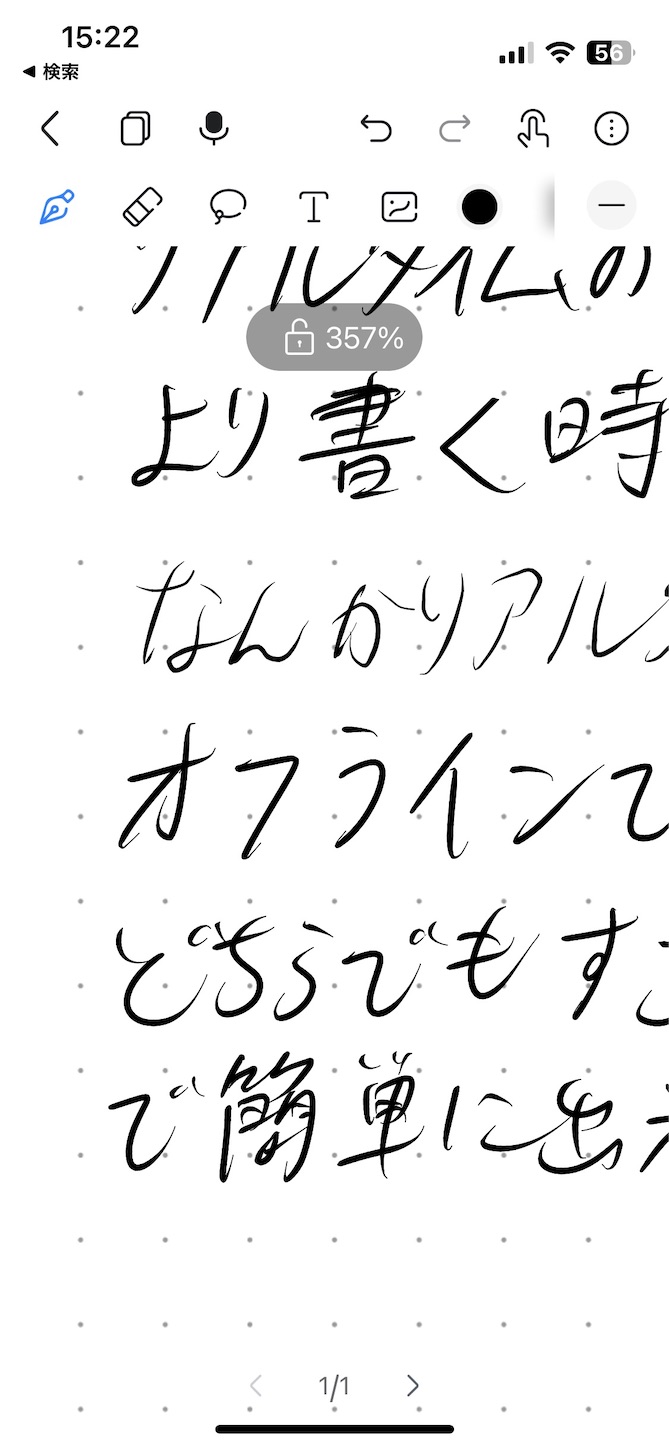 15:22
56
◀ 検索
T
リアルタイムの
357%
より書く時
なんかリアル
オフラインで
どちらでもす
で簡単に出
1/1